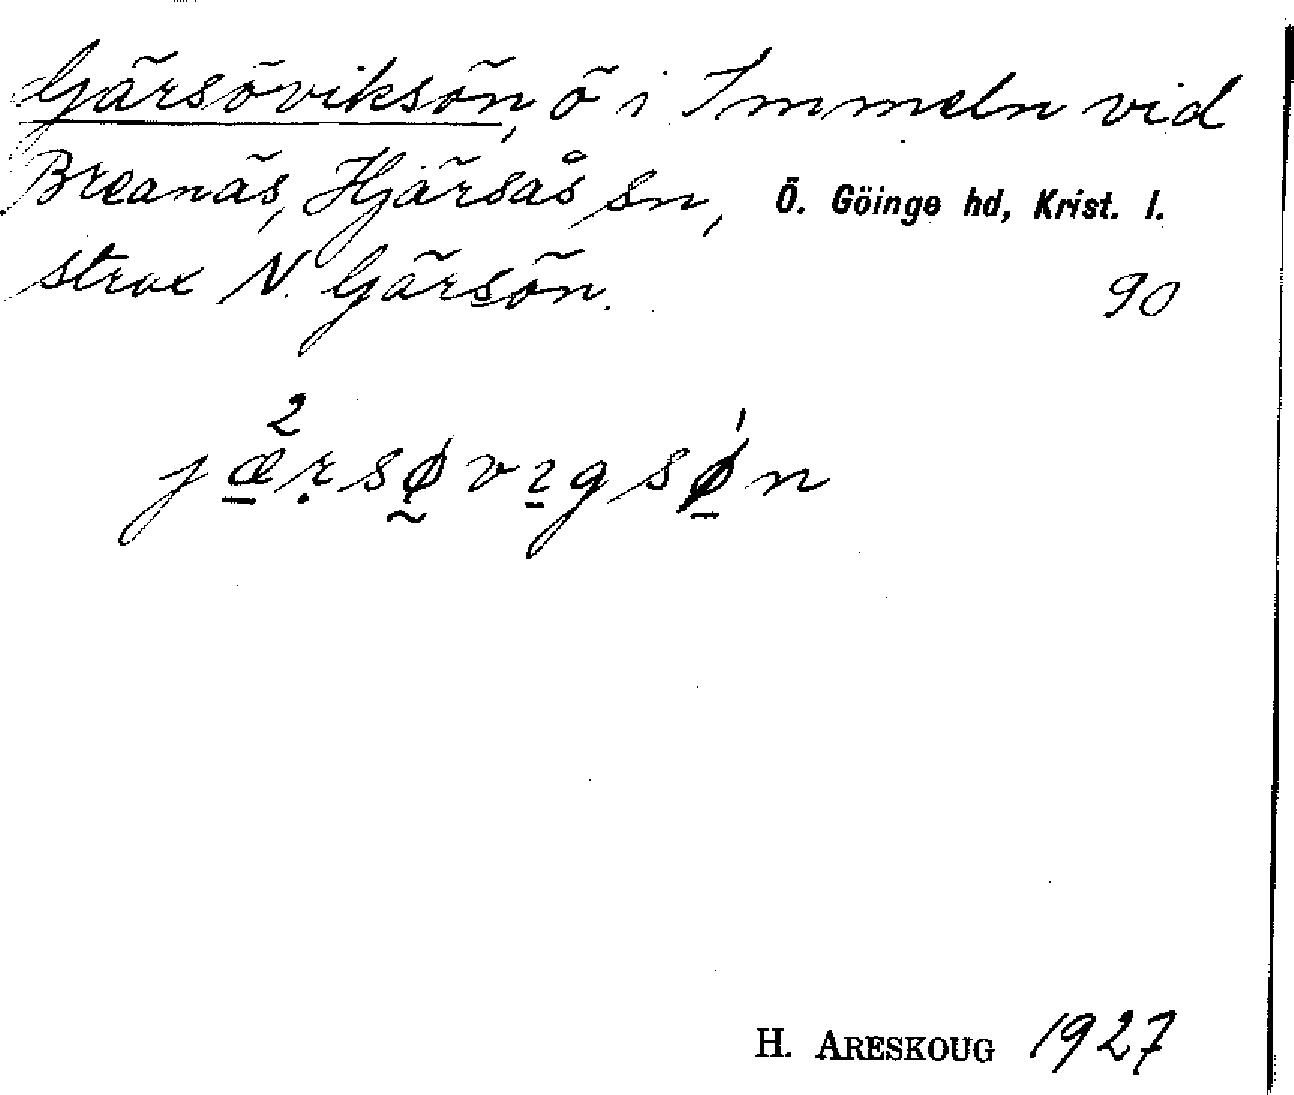 Gärsöviksön, ö i Immeln vid
Breanäs, Hjärsås sn, Ö. Göinge hd, Krist. l.
strax N. Gärsön. 90
2
jæ̱ṛsø̰vı̱gsǿ̱n
H. ARESKOUG 1927